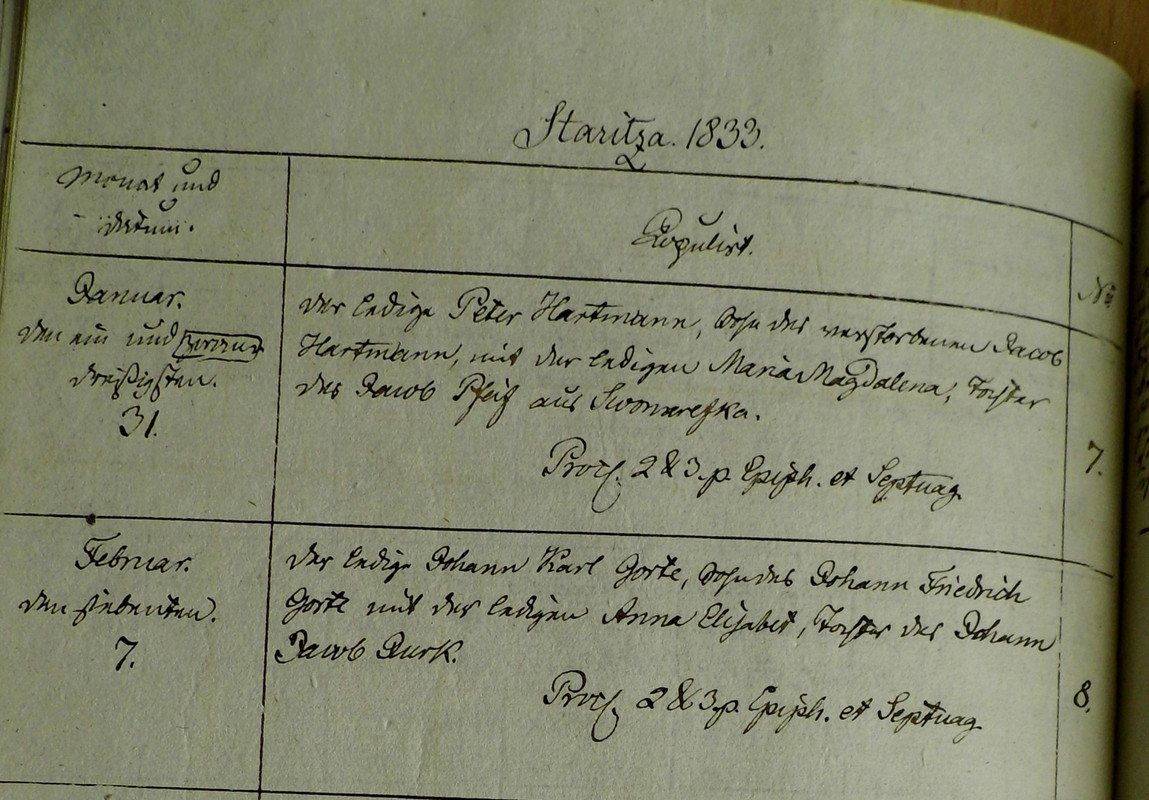 Staritza. 1833.
Monat und
Datum.
Kopulirt.
No
Januar.
den ein und
dreißigsten.
31.
der ledige Peter Hartmann, Sohn des verstorbenen Jacob
Hartmann, mit der ledigen Maria Magdalena, Tochter
des Jacob Pfeif aus Swonareffka.
Procl. 2 & 3. p. Epiph. et Septuag.
7.
Februar.
den siebenten.
7.
der ledige Johann Karl Gorte, Sohn des Johann Friedrich
Gorte mit der ledigen Anna Elisabet, Tochter des Johann
Jacob Burk.
Procl. 2 & 3. p. Epiph. et Septuag.
8.